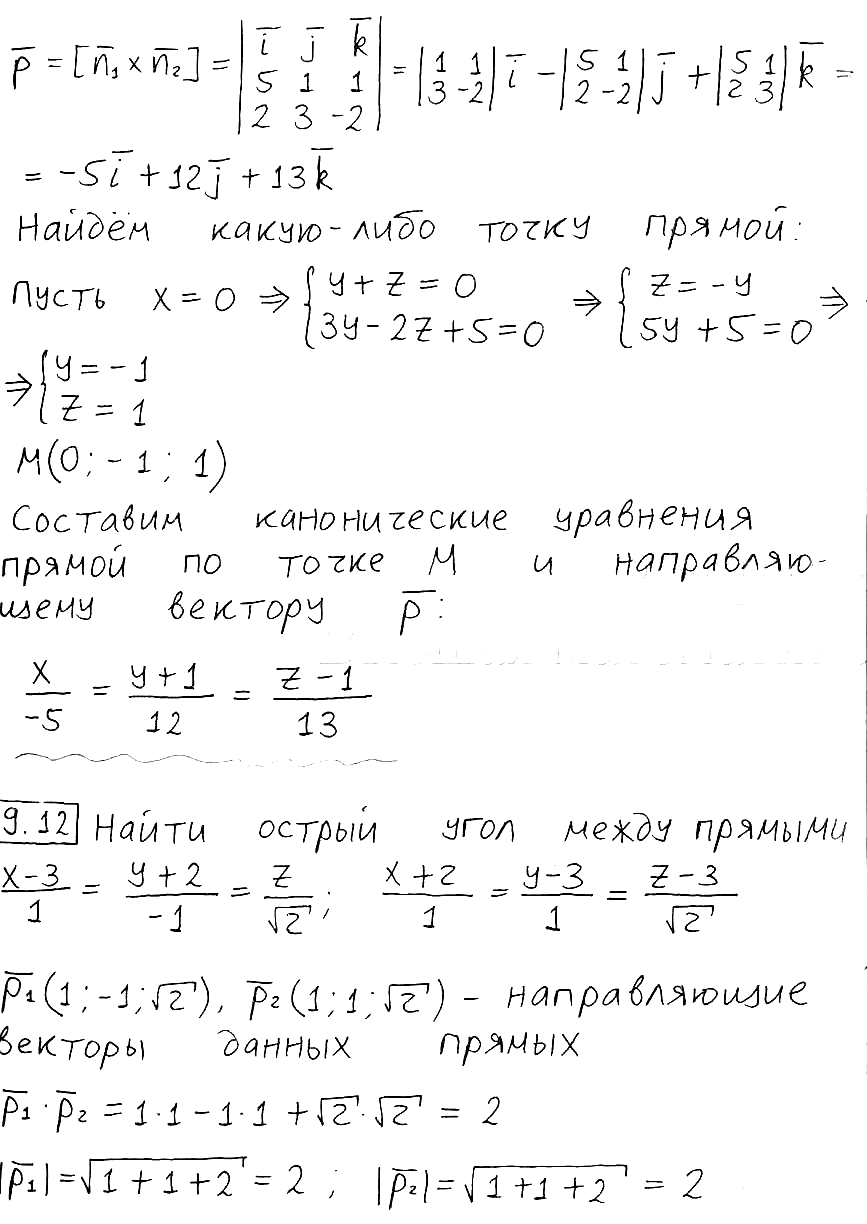 p̅ = [n̅₁ × n̅₂] = |i̅ j̅ k̅; 5 1 1; 2 3 -2| = |1 1; 3 -2| i̅ - |5 1; 2 -2| j̅ + |5 1; 2 3| k̅ =
= -5i̅ + 12j̅ + 13k̅
Найдём какую-либо точку прямой:
Пусть x = 0 ⇒ { y + z = 0; 3y - 2z + 5 = 0 ⇒ { z = -y; 5y + 5 = 0 ⇒
⇒ { y = -1; z = 1
M(0; -1; 1)
Составим канонические уравнения
прямой по точке M и направляю-
щему вектору p̅:
x/-5 = (y+1)/12 = (z-1)/13
9.12 Найти острый угол между прямыми
(x-3)/1 = (y+2)/-1 = z/√2; (x+2)/1 = (y-3)/1 = (z-3)/√2
p̅₁(1; -1; √2), p̅₂(1; 1; √2) - направляющие
векторы данных прямых
p̅₁ · p̅₂ = 1·1 - 1·1 + √2·√2 = 2
|p̅₁| = √(1+1+2) = 2; |p̅₂| = √(1+1+2) = 2